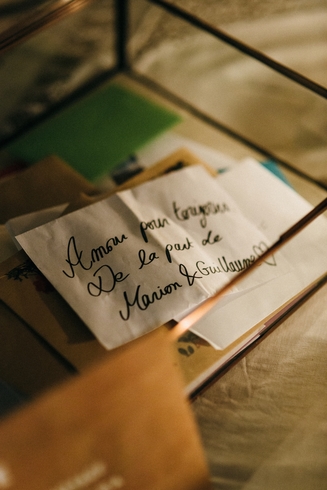 Amour pour toujours
De la part de
Marion & Guillaume ♡